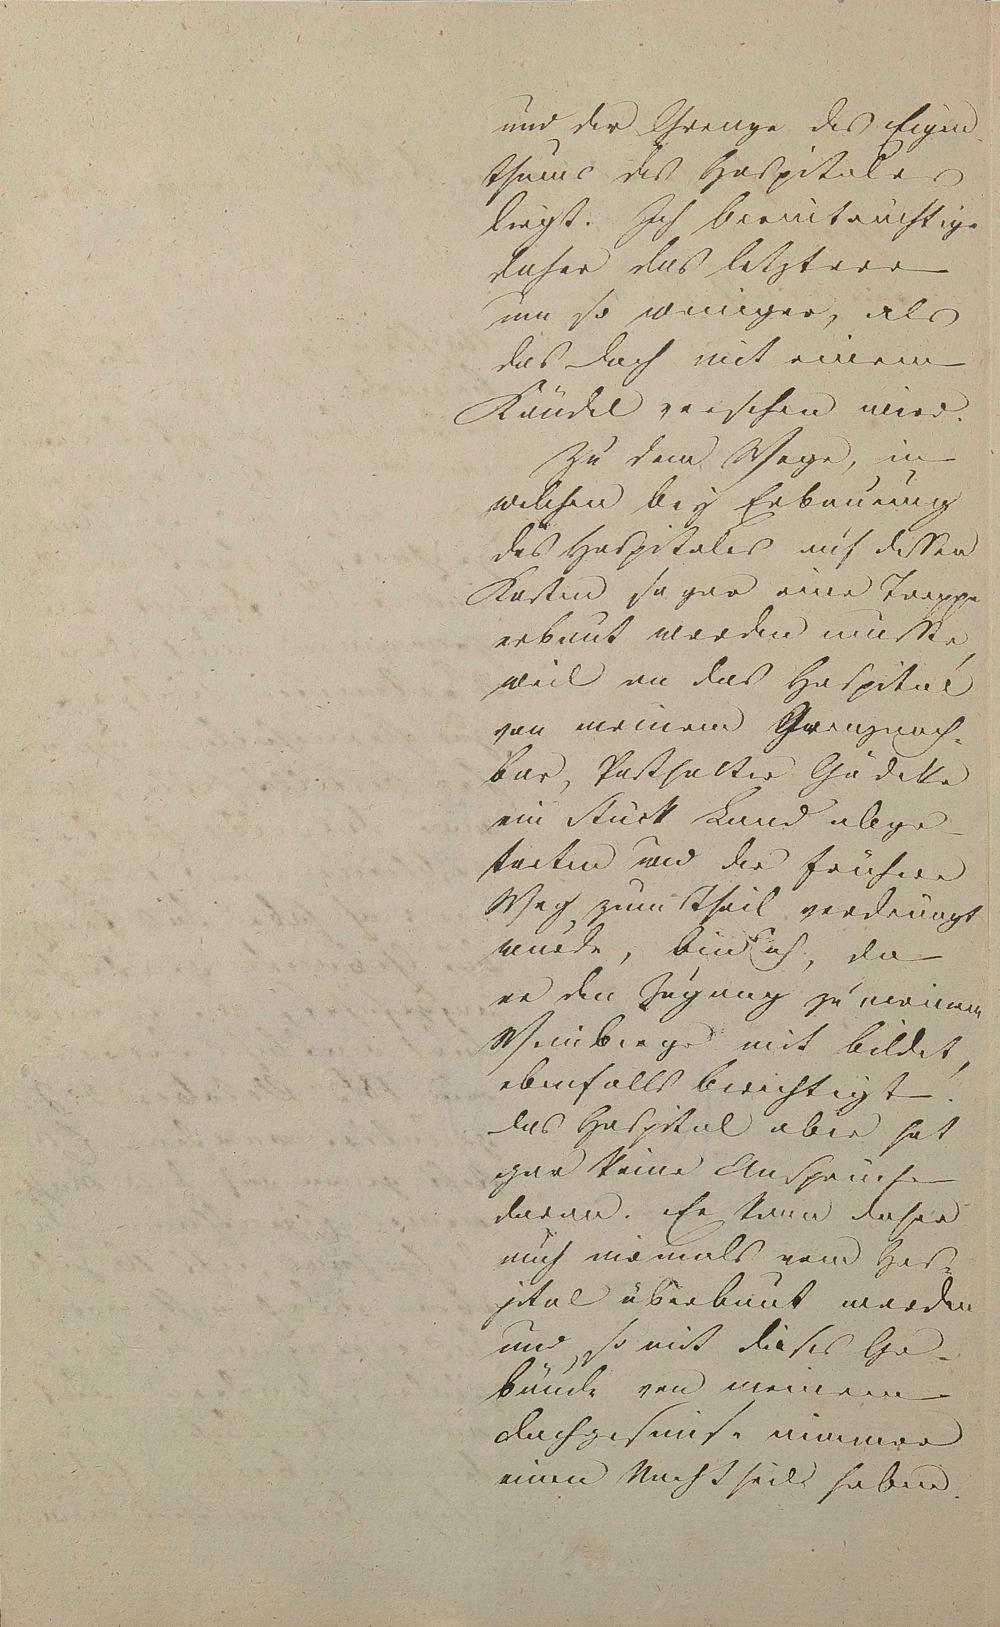 und der Grenze des Eigen-
thums des Hospitales
liegt. Ich beeinträchtige
daher das letztere
um so weniger, als
das Dach mit einem
Kändel versehen wird.
Zu dem Wege, in
welchen bey Erbauung
des Hospitales auf dessen
Kosten sogar eine Treppe
erbaut werden mußte,
weil an das Hospital
von meinem Grenznach-
bar, Posthalter Gödecke
ein Stück Land abge-
treten und der frühere
Weg zum Theil verdrängt
wurde, bin ich, da
er den Zugang zu meinem
Weinberge mit bildet,
ebenfalls berechtigt.
Das Hospital aber hat
gar keine Ansprüche
daran. Er kann daher
auch niemals vom Hos-
pital überbaut werden
und somit dieses Ge-
bäude von meinem
Dachgesimse nimmer
einen Nachtheil haben.